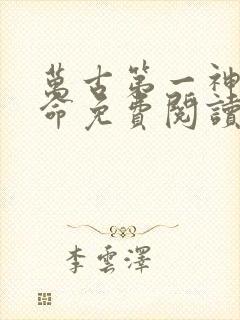 萬古第一神
命免費閱讀
李雲澤